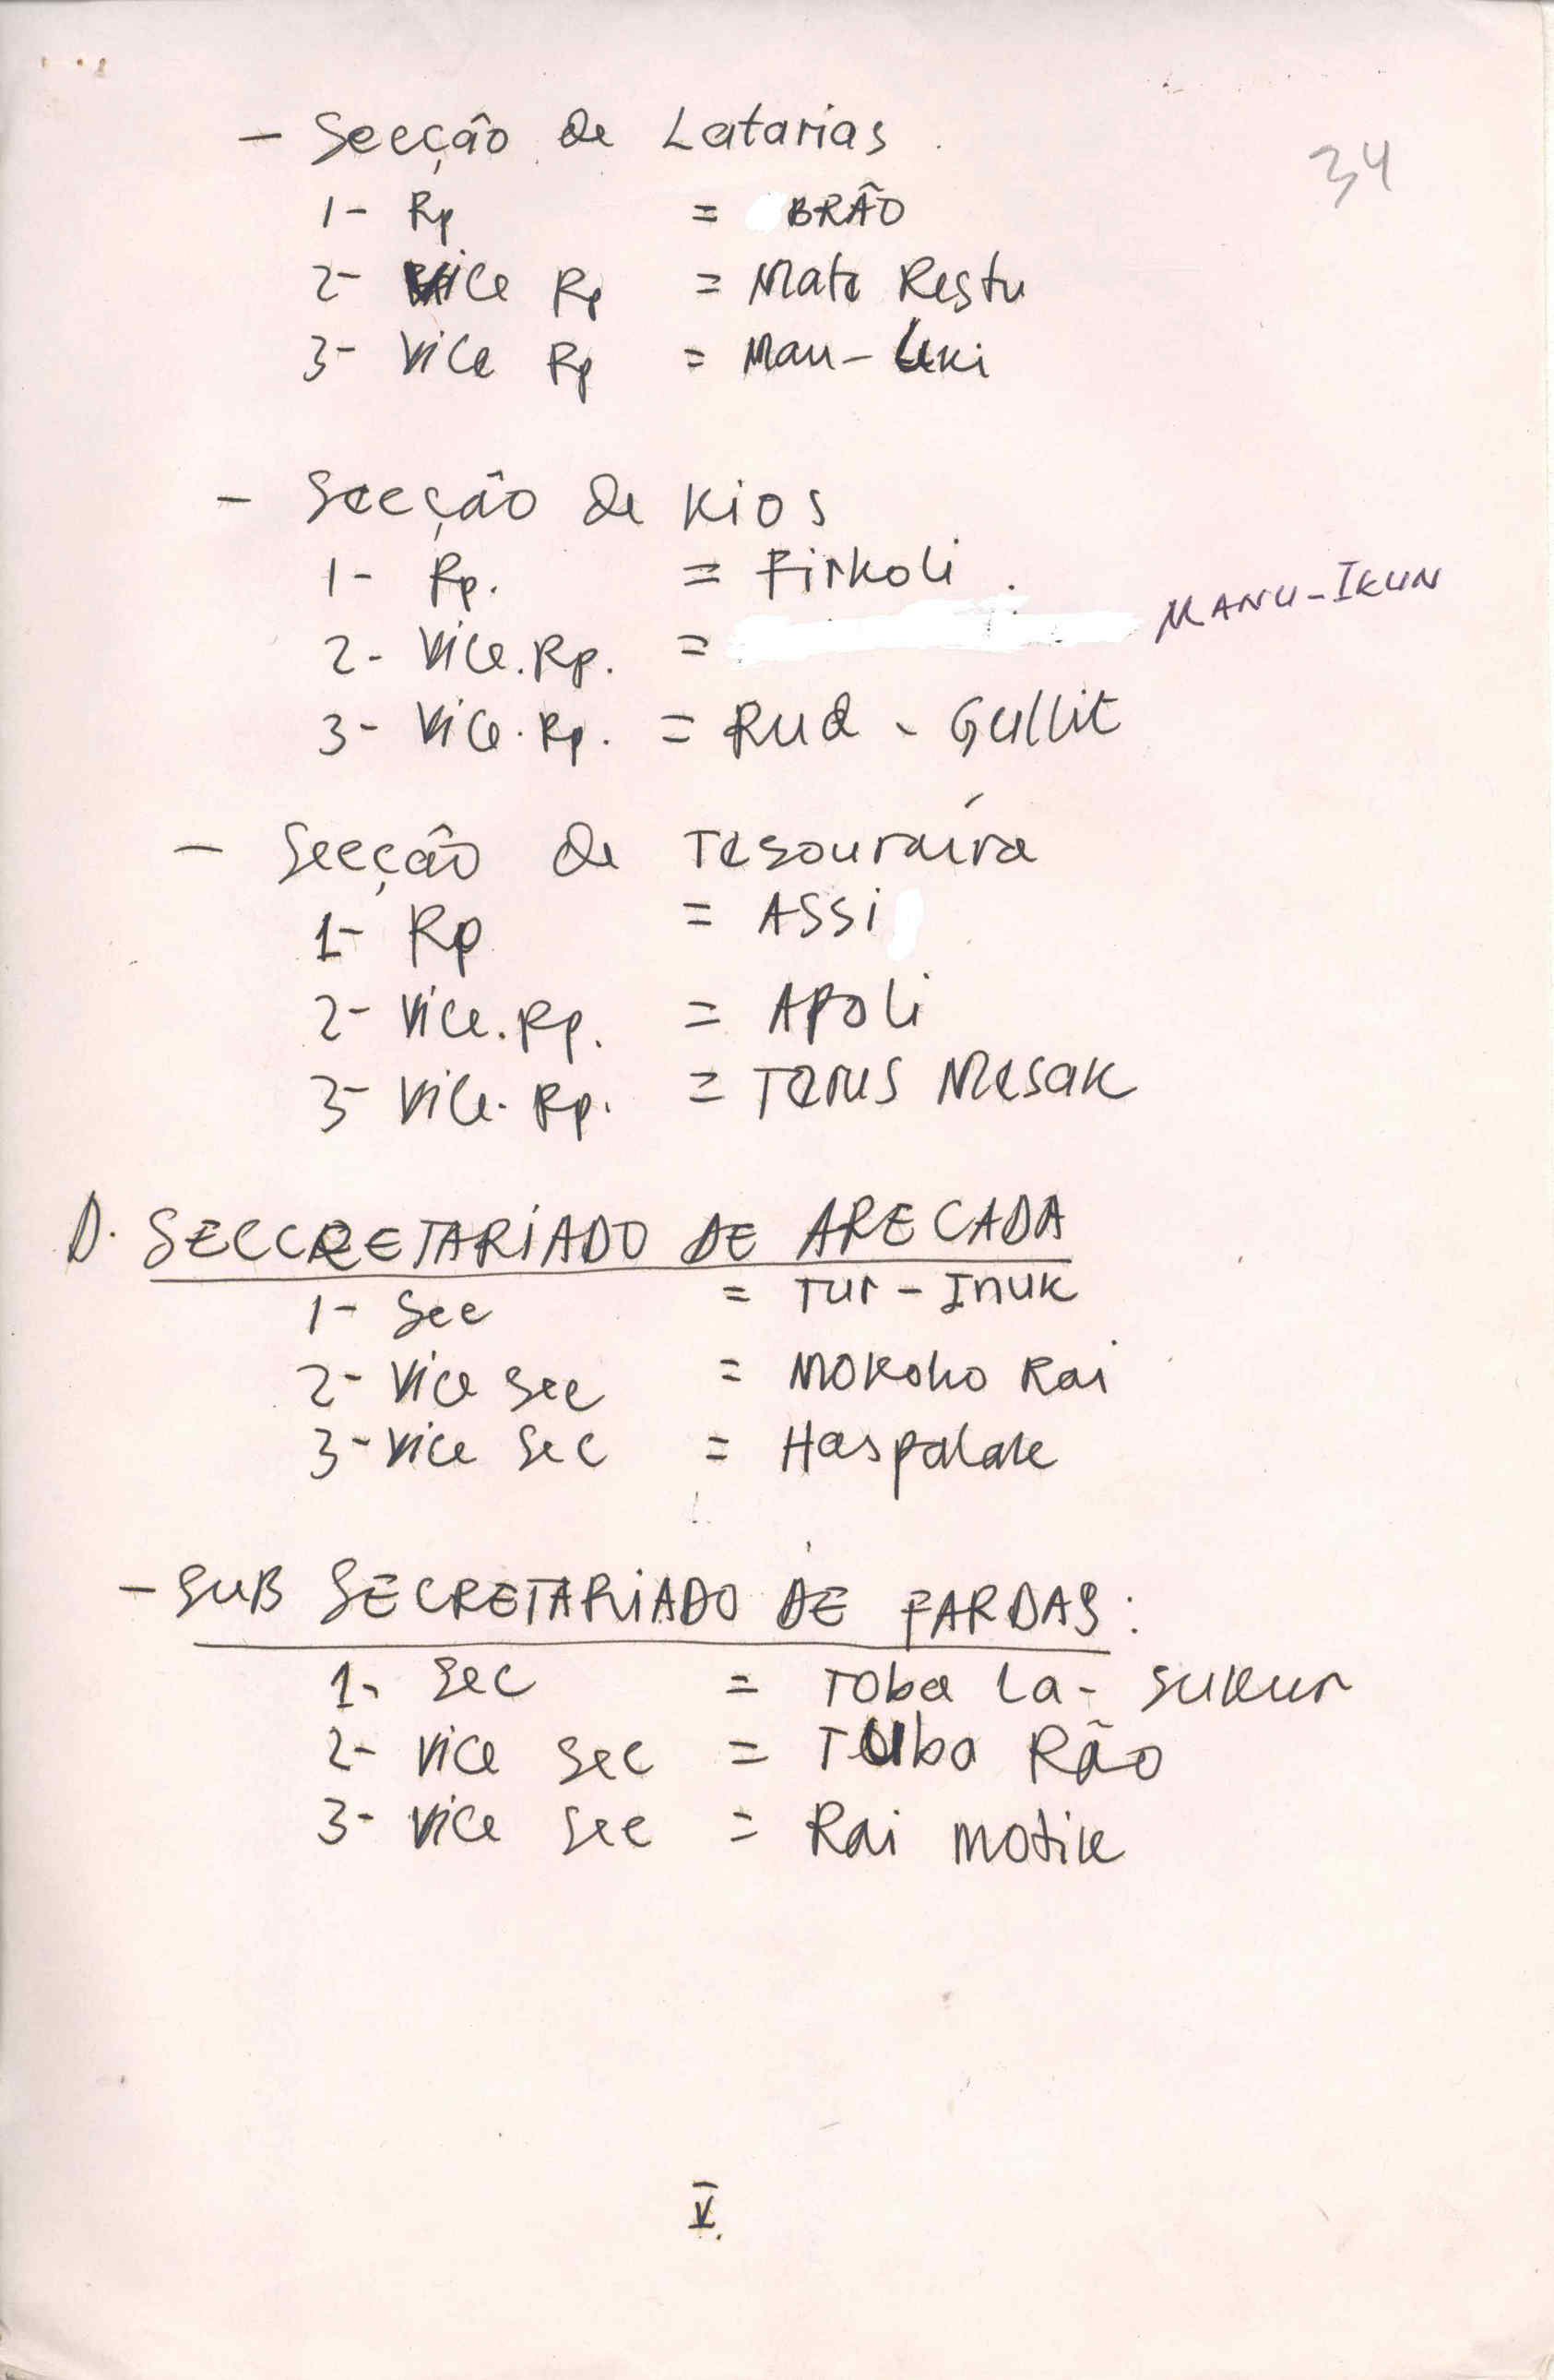 34
- Secção de Latarias
1- Rp = BRÃO
2- Vice Rp = Mate Restu
3- Vice Rp = Mau-Uki
- Secção de Kios
1- Rp. = Firkoli
2- Vice.Rp. = MANU-IKUN
3- Vice.Rp. = Rud - Gullit
- Secção de Tesouraíra
1- Rp = ASSi
2- Vice.Rp. = APOLi
3- Vice.Rp. = Terus Mesak
D. SECCRETARiADO DE ARECADA
1- Sec = Tur-Inuk
2- Vice Sec = Mokoho Rai
3- Vice Sec = Haspalak
- SUB SECRETARiADO DE FARDAS:
1- Sec = Toba La- Sukur
2- Vice Sec = Tuba Rão
3- Vice Sec = Rai Motik
V.